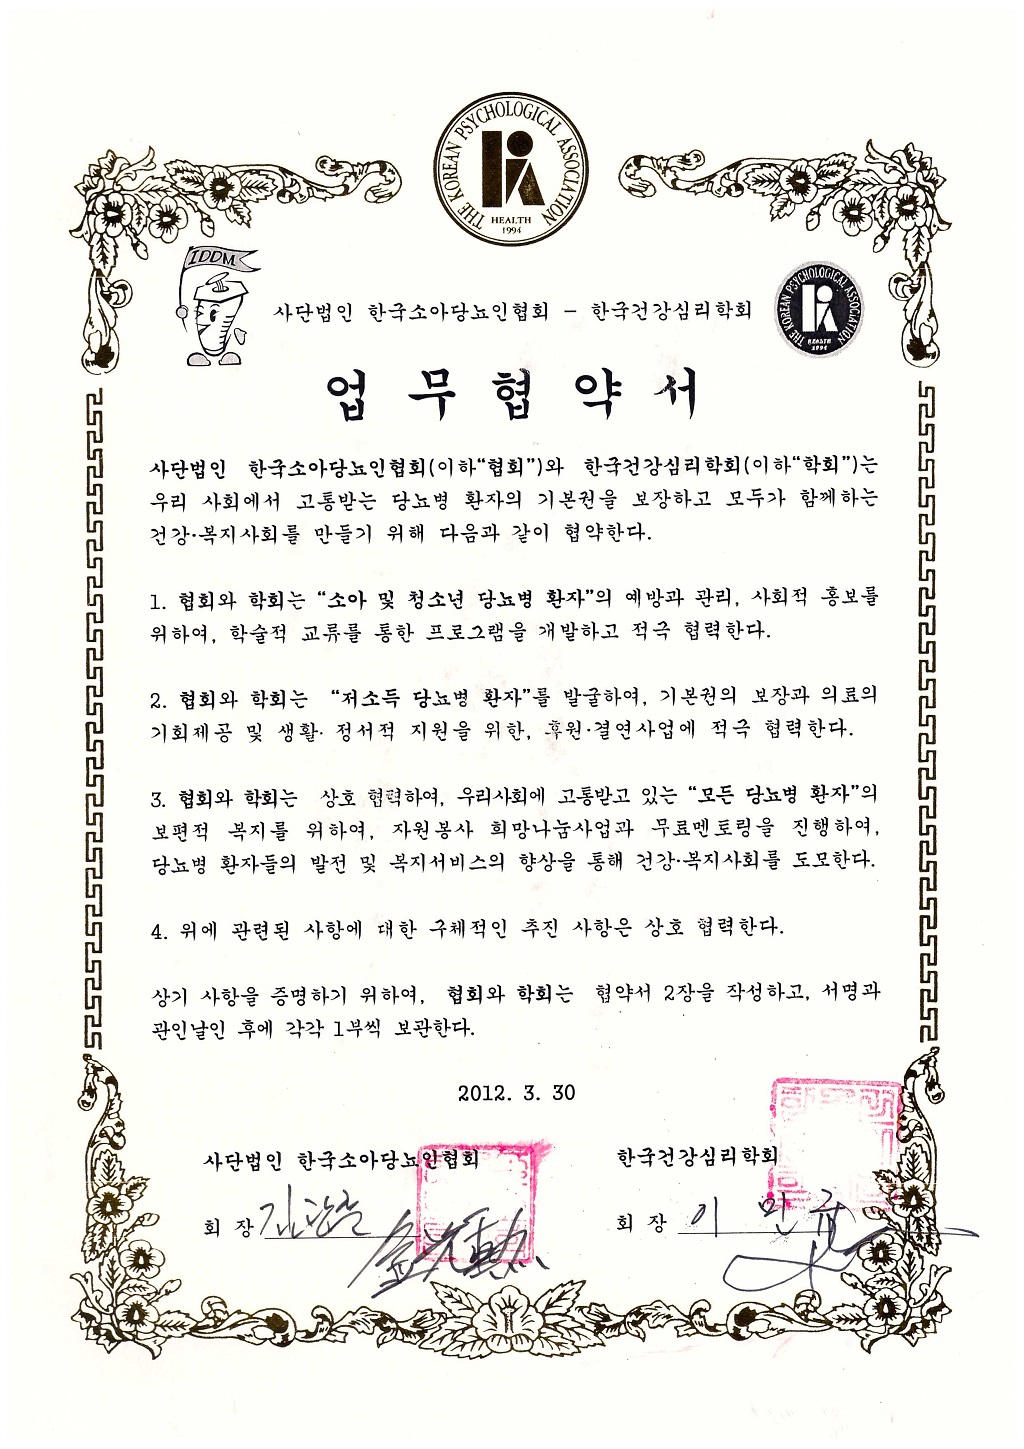 THE KOREAN PSYCHOLOGICAL ASSOCIATION
HEALTH
1994
IDDM
사단법인 한국소아당뇨인협회 - 한국건강심리학회
THE KOREAN PSYCHOLOGICAL ASSOCIATION
HEALTH
1994
업무협약서
사단법인 한국소아당뇨인협회(이하“협회”)와 한국건강심리학회(이하“학회”)는
우리 사회에서 고통받는 당뇨병 환자의 기본권을 보장하고 모두가 함께하는
건강·복지사회를 만들기 위해 다음과 같이 협약한다.
1. 협회와 학회는 “소아 및 청소년 당뇨병 환자”의 예방과 관리, 사회적 홍보를
위하여, 학술적 교류를 통한 프로그램을 개발하고 적극 협력한다.
2. 협회와 학회는 “저소득 당뇨병 환자”를 발굴하여, 기본권의 보장과 의료의
기회제공 및 생활· 정서적 지원을 위한, 후원·결연사업에 적극 협력한다.
3. 협회와 학회는 상호 협력하여, 우리사회에 고통받고 있는 “모든 당뇨병 환자”의
보편적 복지를 위하여, 자원봉사 희망나눔사업과 무료멘토링을 진행하여,
당뇨병 환자들의 발전 및 복지서비스의 향상을 통해 건강·복지사회를 도모한다.
4. 위에 관련된 사항에 대한 구체적인 추진 사항은 상호 협력한다.
상기 사항을 증명하기 위하여, 협회와 학회는 협약서 2장을 작성하고, 서명과
관인날인 후에 각각 1부씩 보관한다.
2012. 3. 30
사단법인 한국소아당뇨인협회
한국건강심리학회
회 장
회 장 이 민 규